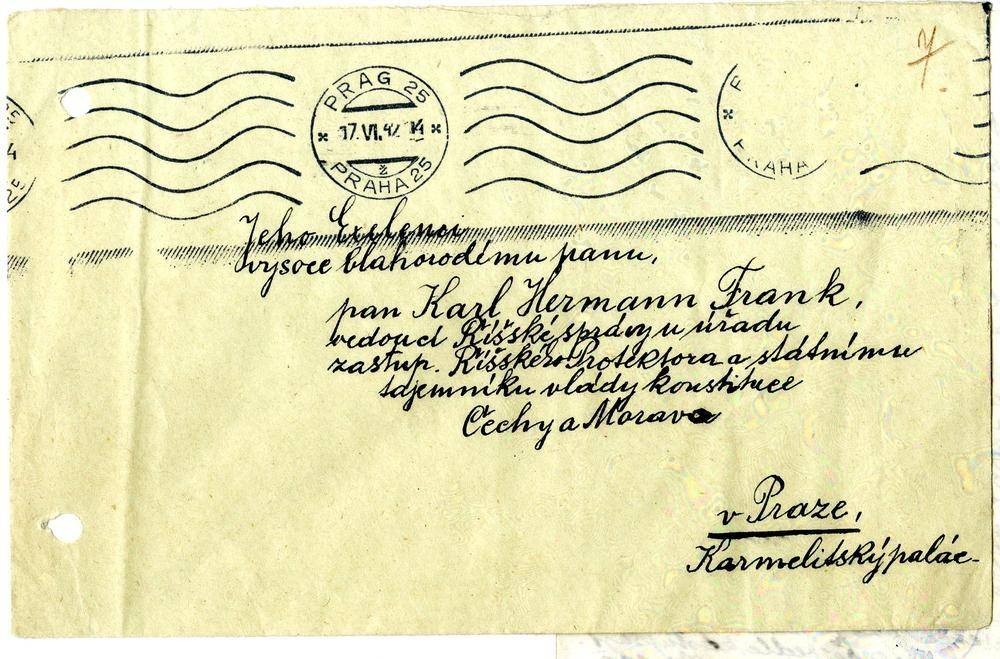 7
PRAG 25
17.VI.42 14
ž
PRAHA 25
PRAHA
Jeho Excelenci
vysoce blahorodému panu,
pan Karl Hermann Frank,
vedoucí Říšské správy u úřadu
zástup. Říšského Protektora a státnímu
tajemníku vlády konstituce
Čechy a Morava
v Praze,
Karmelitský palác-